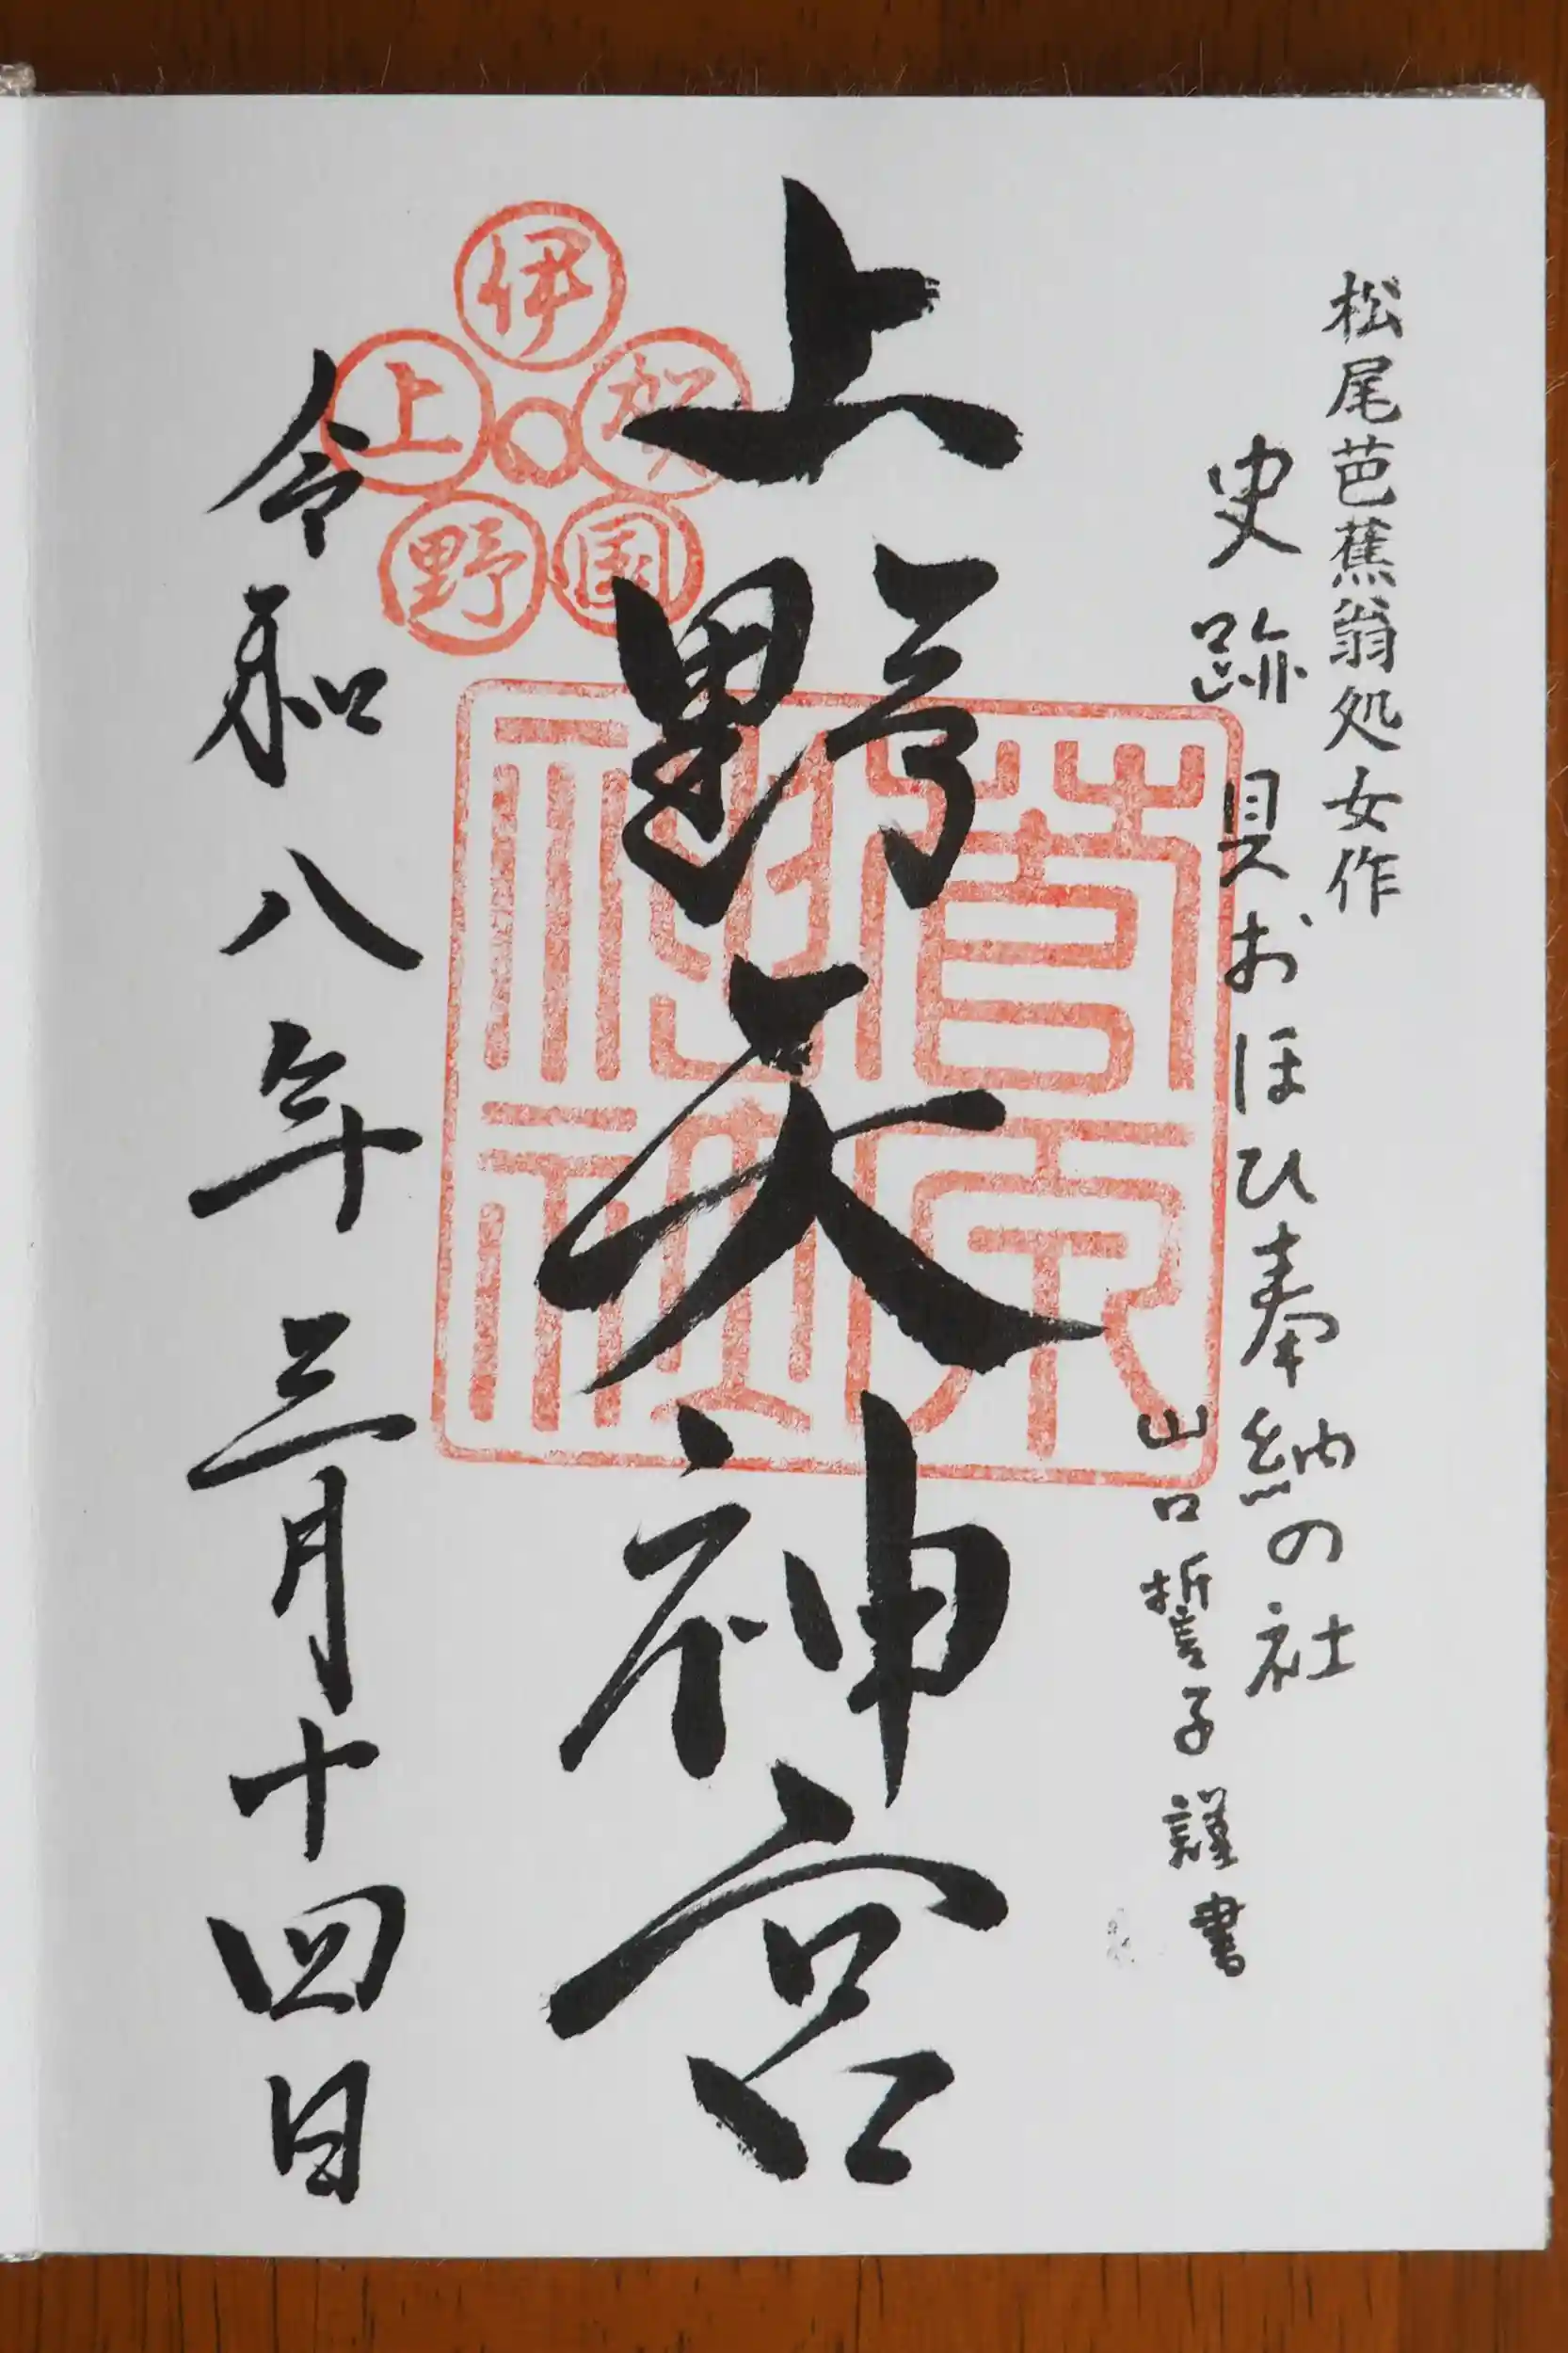 松尾芭蕉翁処女作
史跡 貝おほひ奉納の社
山口誓子謹書
上野天神宮
伊賀国上野
菅原神社
令和八年三月十四日